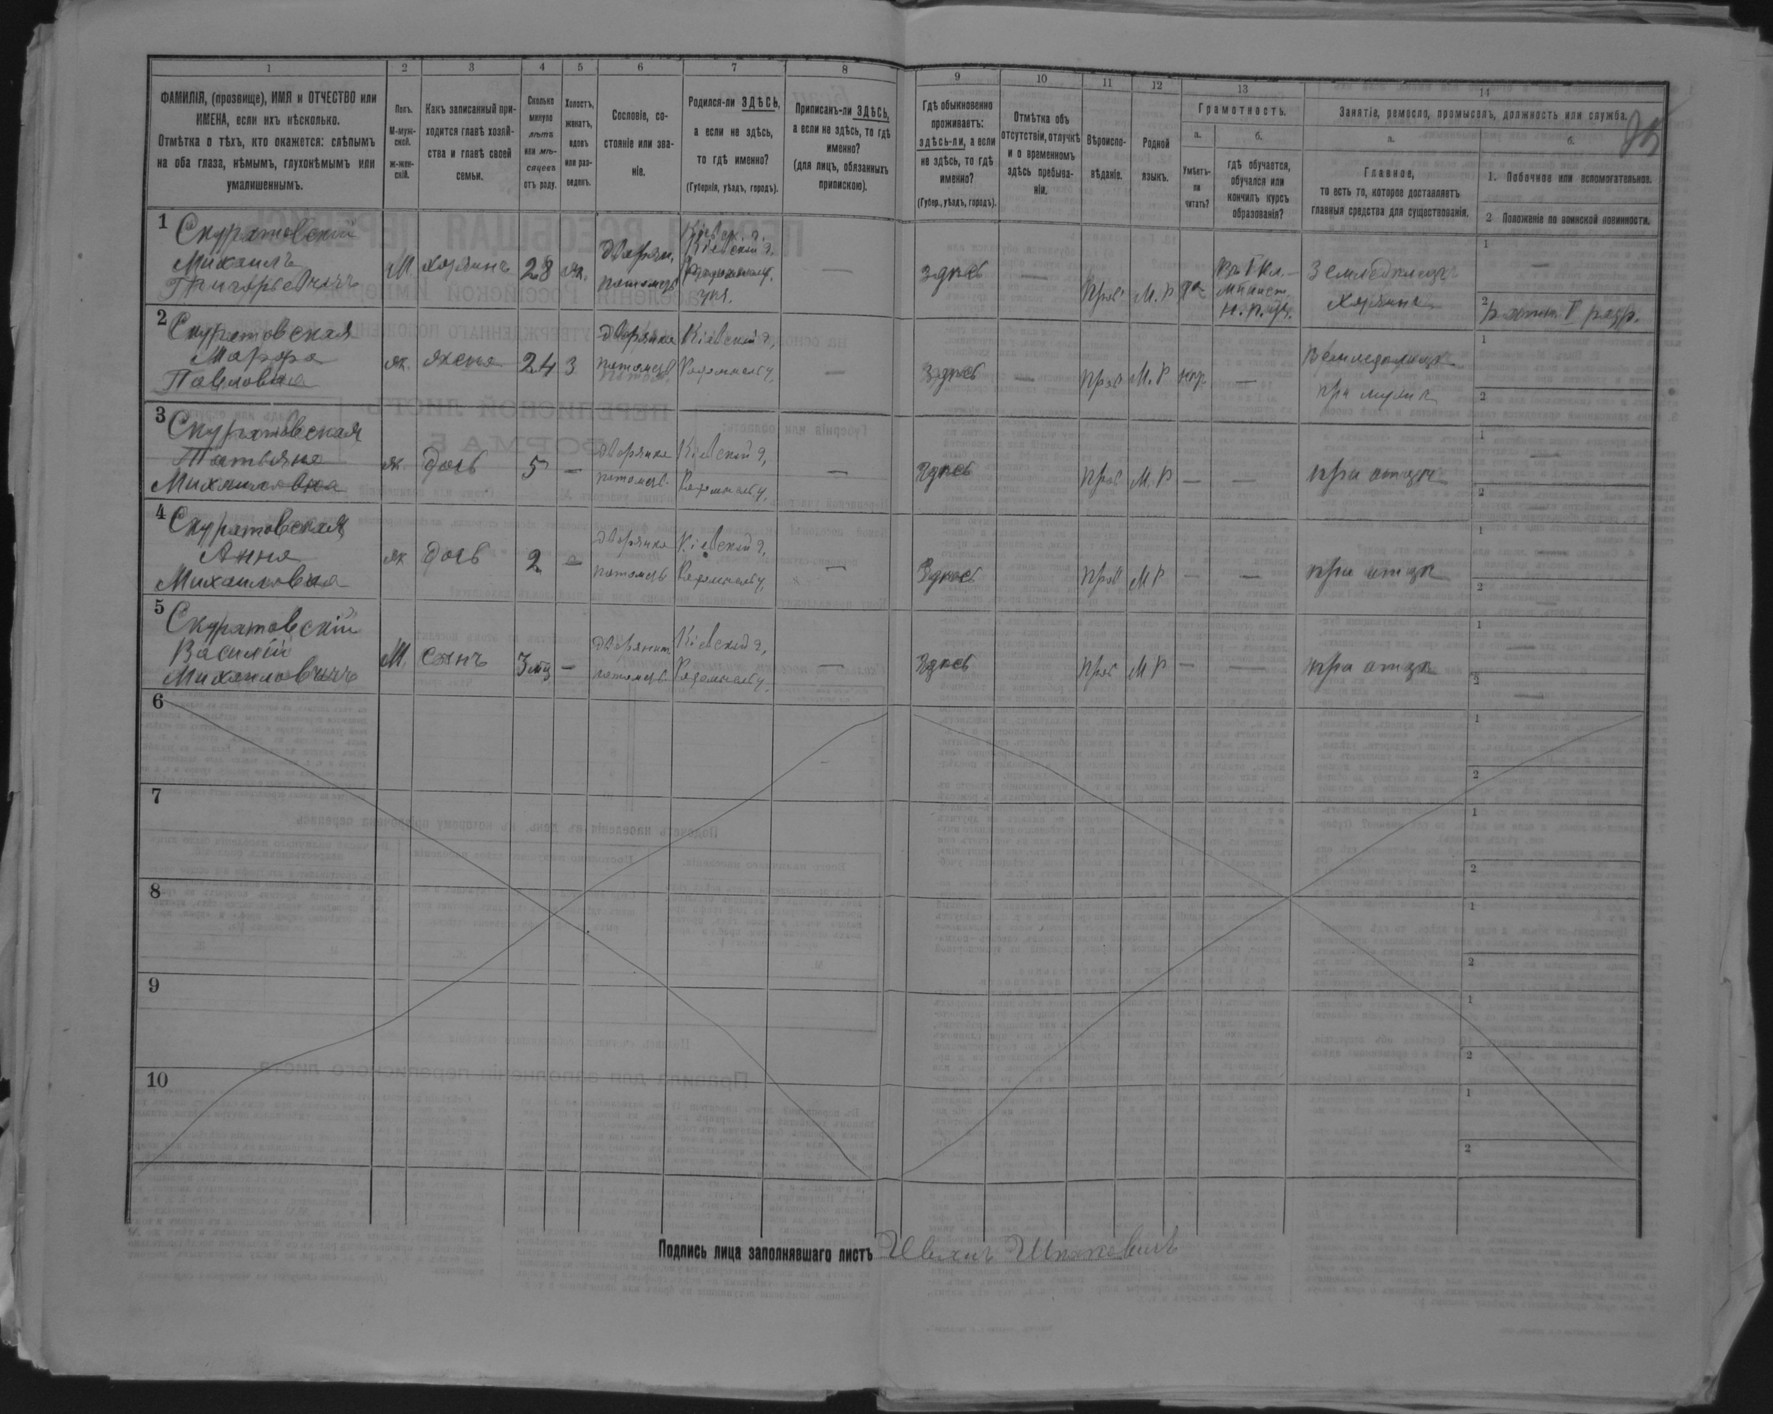 1 2 3 4 5 6 7 8 9 10 11 12 13 14
ФАМИЛІЯ, (прозвище), ИМЯ и ОТЧЕСТВО или
ИМЕНА, если ихъ нѣсколько.
Отмѣтка о тѣхъ, кто окажется: слѣпымъ
на оба глаза, нѣмымъ, глухонѣмымъ или
умалишеннымъ.
Полъ.
М-муж-
ской.
ж-жен-
скій.
Какъ записанный при-
ходится главѣ хозяй-
ства и главѣ своей
семьи.
Сколько
минуло
лѣтъ
или мѣ-
сяцевъ
отъ роду.
Холостъ,
женатъ,
вдовъ
или раз-
веденъ.
Сословіе, со-
стояніе или зва-
ніе.
Родился-ли ЗДѢСЬ,
а если не здѣсь,
то гдѣ именно?
(Губернія, уѣздъ, городъ).
Приписанъ-ли ЗДѢСЬ,
а если не здѣсь, то гдѣ
именно?
(для лицъ, обязанныхъ
припискою).
Гдѣ обыкновенно
проживаетъ:
здѣсь-ли, а если
не здѣсь, то гдѣ
именно?
(Губер., уѣздъ, городъ).
Отмѣтка объ
отсутствіи, отлучкѣ
и о временномъ
здѣсь пребыва-
ніи.
Вѣроиспо-
вѣданіе.
Родной
языкъ.
Грамотность.
а.
Умѣетъ-
ли
читать?
б.
гдѣ обучается,
обучался или
кончилъ курсъ
образованія?
Занятіе, ремесло, промыселъ, должность или служба.
а.
Главное,
то есть то, которое доставляетъ
главныя средства для существованія.
б.
1. Побочное или вспомогательное.
2 Положеніе по воинской повинности.
1
Скуратовскій
Михаилъ
Григорьевичъ
М. хозяинъ 28 жн.
Дворян.
потомств
Кіевск. г.
Кіевской г.
здѣсь —
Прав. М. Р да
Земледѣлецъ
хозяинъ
1 —
2
2
Скуратовская
Марфа
Павловна
ж. жена 24 з
дворянка
потомств
Кіевской г.
— здѣсь —
Прав М. Р —
при мужѣ
1
2
3
Скуратовская
Татьяна
Михаиловна
ж. дочь 5 —
дворянка
потомств.
Кіевской г.
— здѣсь
Прав М. Р — —
при отцѣ
1 —
2 —
4
Скуратовская
Анна
Михаиловна
ж дочь 2 —
дворянка
потомств
Кіевской г.
— Здѣсь
Прав М Р — —
при отцѣ
1 —
2 —
5
Скуратовскій
Василій
Михаиловичъ
М. сынъ —
потомств
Кіевской г.
— здѣсь
Прав М Р — —
при отцѣ
1 —
2 —
6
1
2
7
1
2
8
1
2
9
1
2
10
1
2
Подпись лица заполнявшаго листъ